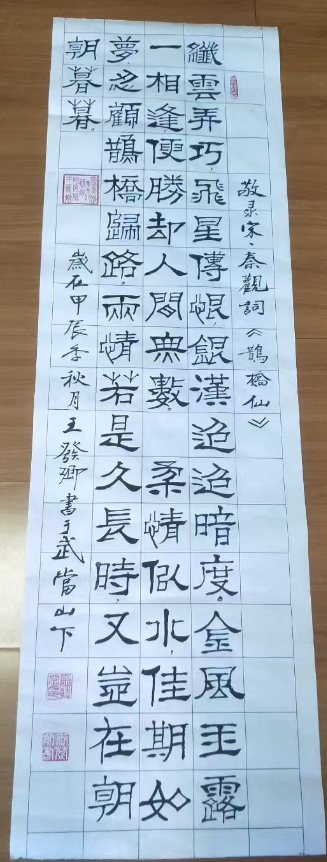 敬录宋、秦觀詞《鵲橋仙》
纖雲弄巧,飛星傳恨,銀漢迢迢暗度。金風玉露
一相逢,便勝却人間無數,柔情似水,佳期如
夢,忍顧鵲橋歸路,兩情若是久長時,又豈在朝
朝暮暮。
歲在甲辰年秋月王發卿書于武當山下